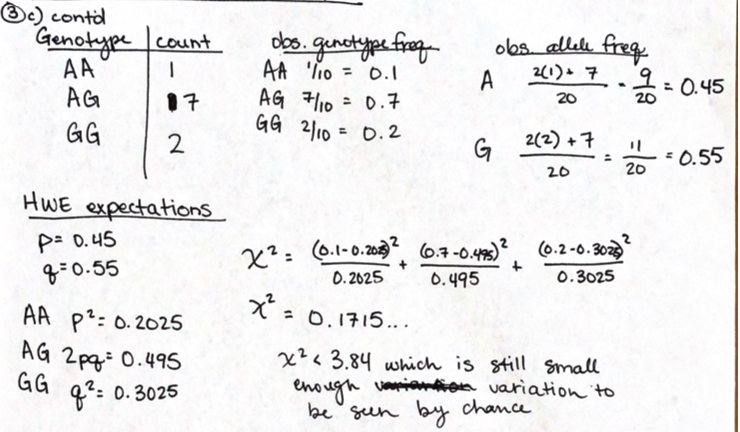 ③c) cont'd
Genotype | count
AA 1
AG 7
GG 2
obs. genotype freq.
AA 1/10 = 0.1
AG 7/10 = 0.7
GG 2/10 = 0.2
obs. allele freq.
A (2(1) + 7)/20 = 9/20 = 0.45
G (2(2) + 7)/20 = 11/20 = 0.55
HWE expectations
p = 0.45
q = 0.55
AA p² = 0.2025
AG 2pq = 0.495
GG q² = 0.3025
χ² = (0.1-0.2025)²/0.2025 + (0.7-0.495)²/0.495 + (0.2-0.3025)²/0.3025
χ² = 0.1715...
χ² < 3.84 which is still small
enough variation to
be seen by chance